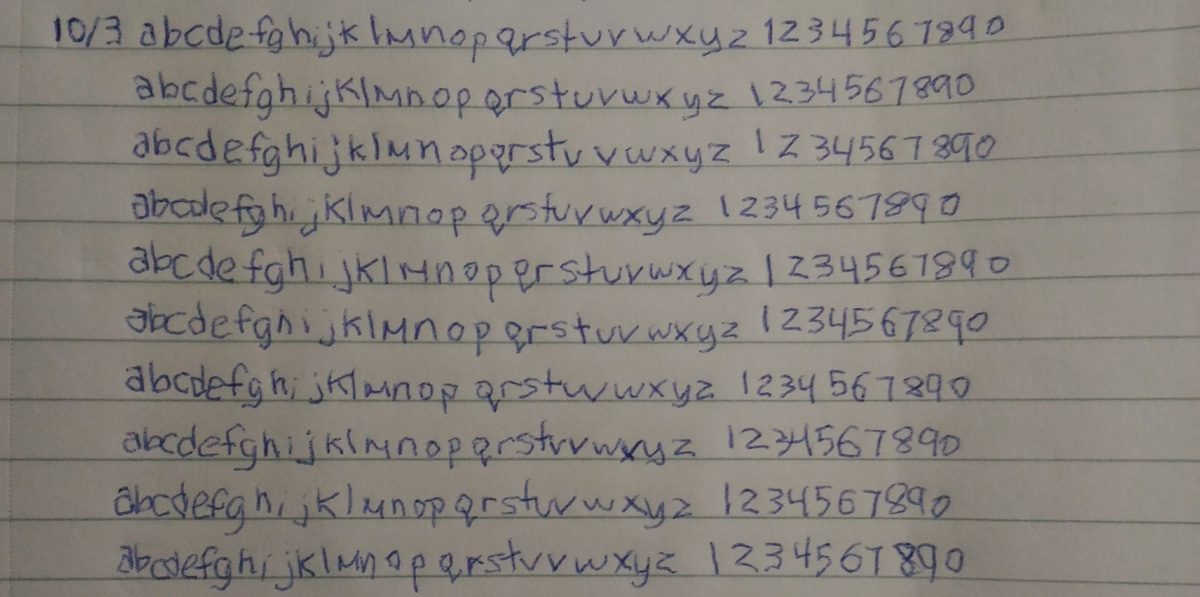 10/3 abcdefghijklmnopqrstuvwxyz 1234567890
abcdefghijklmnopqrstuvwxyz 1234567890
abcdefghijklmnopqrstuvwxyz 1234567890
abcdefghijklmnopqrstuvwxyz 1234567890
abcdefghijklmnopqrstuvwxyz 1234567890
abcdefghijklmnopqrstuvwxyz 1234567890
abcdefghijklmnopqrstuvwxyz 1234567890
abcdefghijklmnopqrstuvwxyz 1234567890
abcdefghijklmnopqrstuvwxyz 1234567890
abcdefghijklmnopqrstuvwxyz 1234567890